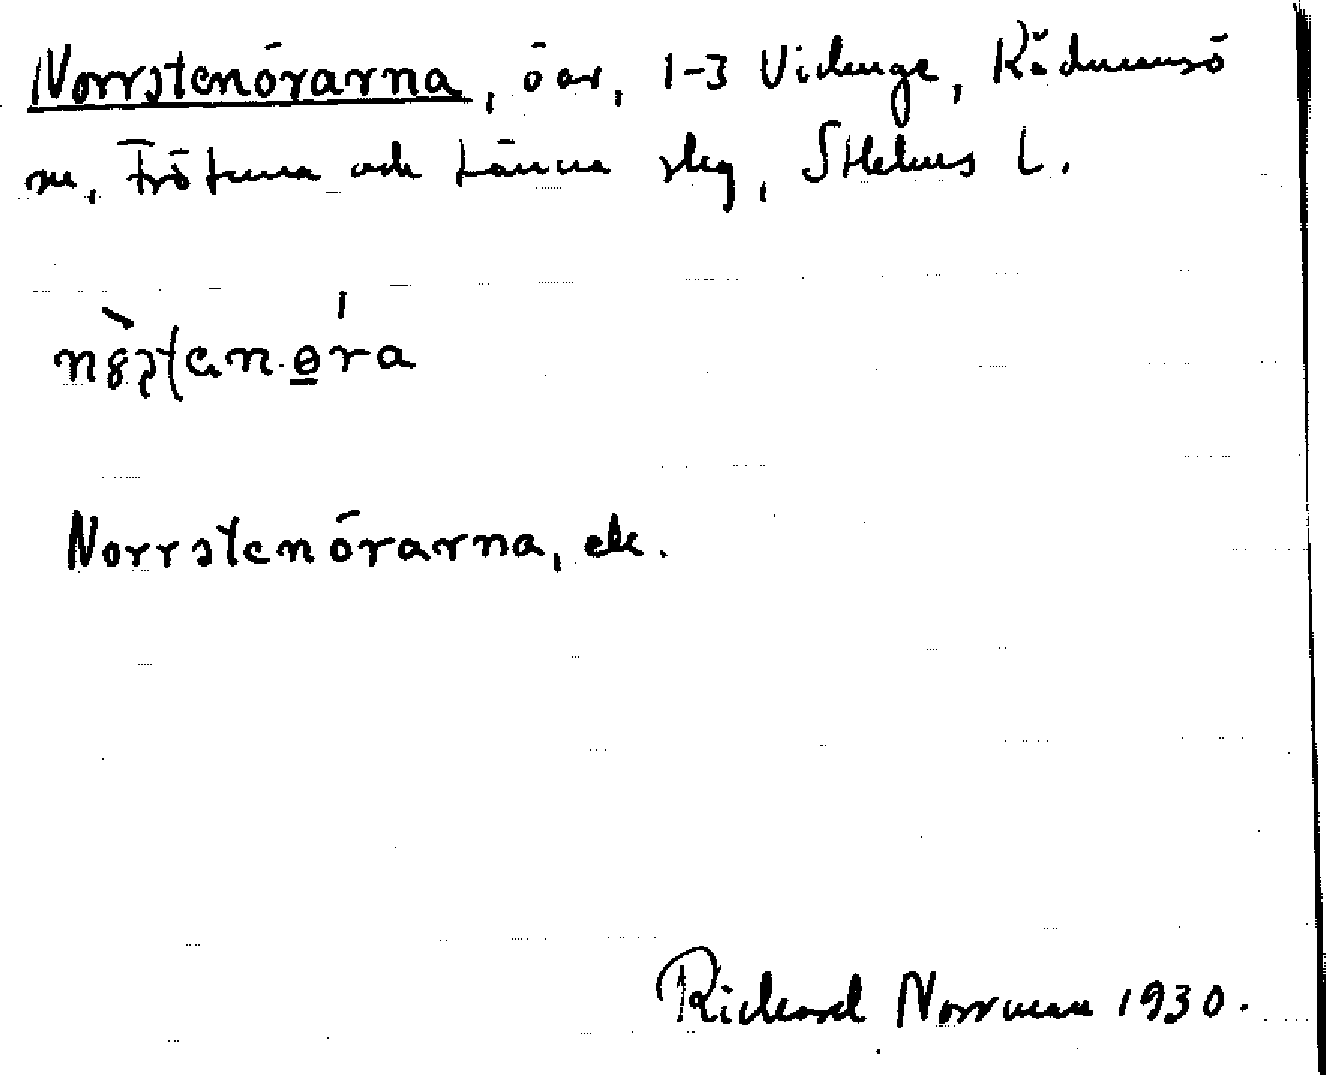 Norrstenörarna, öar, 1-3 Vidinge, Rådmansö
sn, Frötuna och Länna skg, Sthlms L.
Norrstenörarna, ek.
Rickard Norrman 1930.